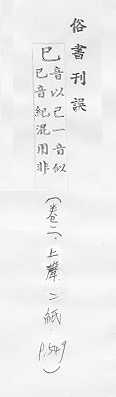 俗書刊誤
已
音以巳一音似
己音紀混用非
(卷二、上聲二紙 p.549)